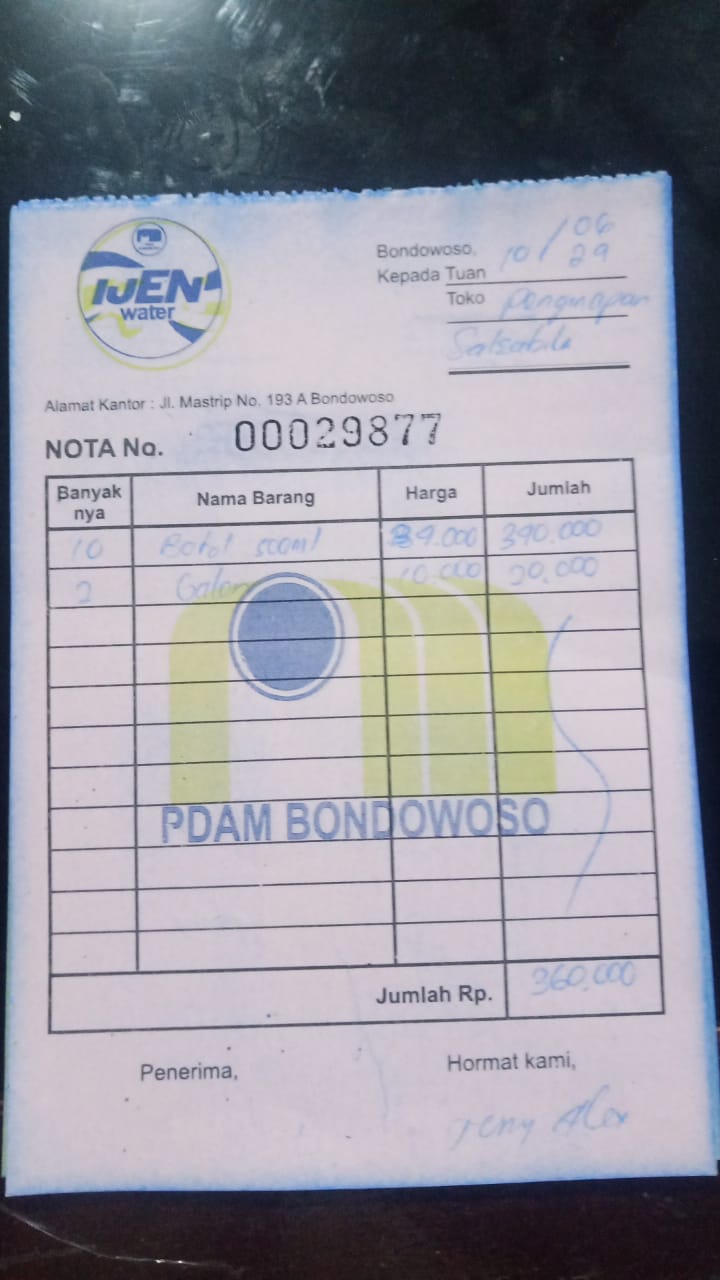 IJEN
water
Bondowoso, 10/06
24
Kepada Tuan
Toko Penginapan
Salsabila
Alamat Kantor : Jl. Mastrip No. 193 A Bondowoso
NOTA No. 00029877
Banyak nya Nama Barang Harga Jumlah
10 Botol 500ml 34.000 340.000
2 Galon 10.000 20.000
PDAM BONDOWOSO
Jumlah Rp. 360.000
Penerima, Hormat kami,
Alex